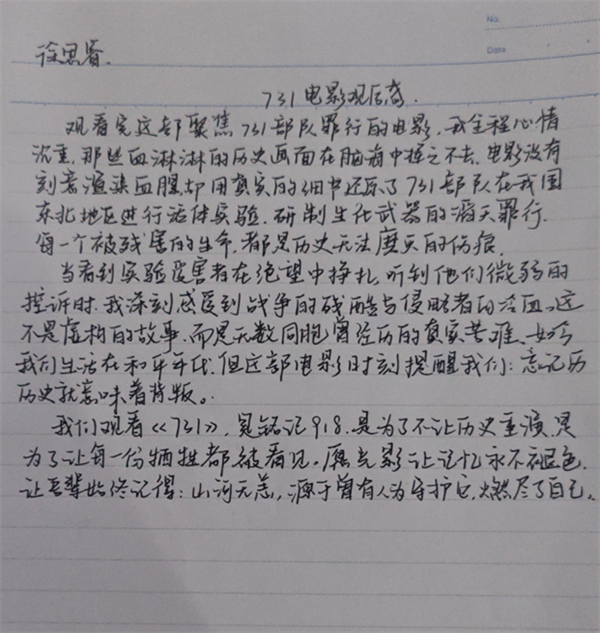 No.
Date
徐思睿.
731电影观后感.
观看完这部聚焦731部队罪行的电影,我全程心情
沉重,那些血淋淋的历史画面在脑海中挥之不去,电影没有
刻意渲染血腥,却用真实的细节还原了731部队在我国
东北地区进行活体实验、研制生化武器的滔天罪行.
每一个被残害的生命,都是历史无法磨灭的伤痕.
当看到实验受害者在绝望中挣扎,听到他们微弱的
控诉时,我深刻感受到战争的残酷与侵略者的冷血。这
不是虚构的故事,而是无数同胞曾经历的真实苦难.如今
我们生活在和平年代,但这部电影时刻提醒我们:忘记历
历史就意味着背叛。
我们观看《731》,是铭记918.是为了不让历史重演,是
为了让每一份牺牲都被看见。愿光影让记忆永不褪色.
让吾辈始终记得:山河无恙,源于曾有人为守护它,燃尽了自己。